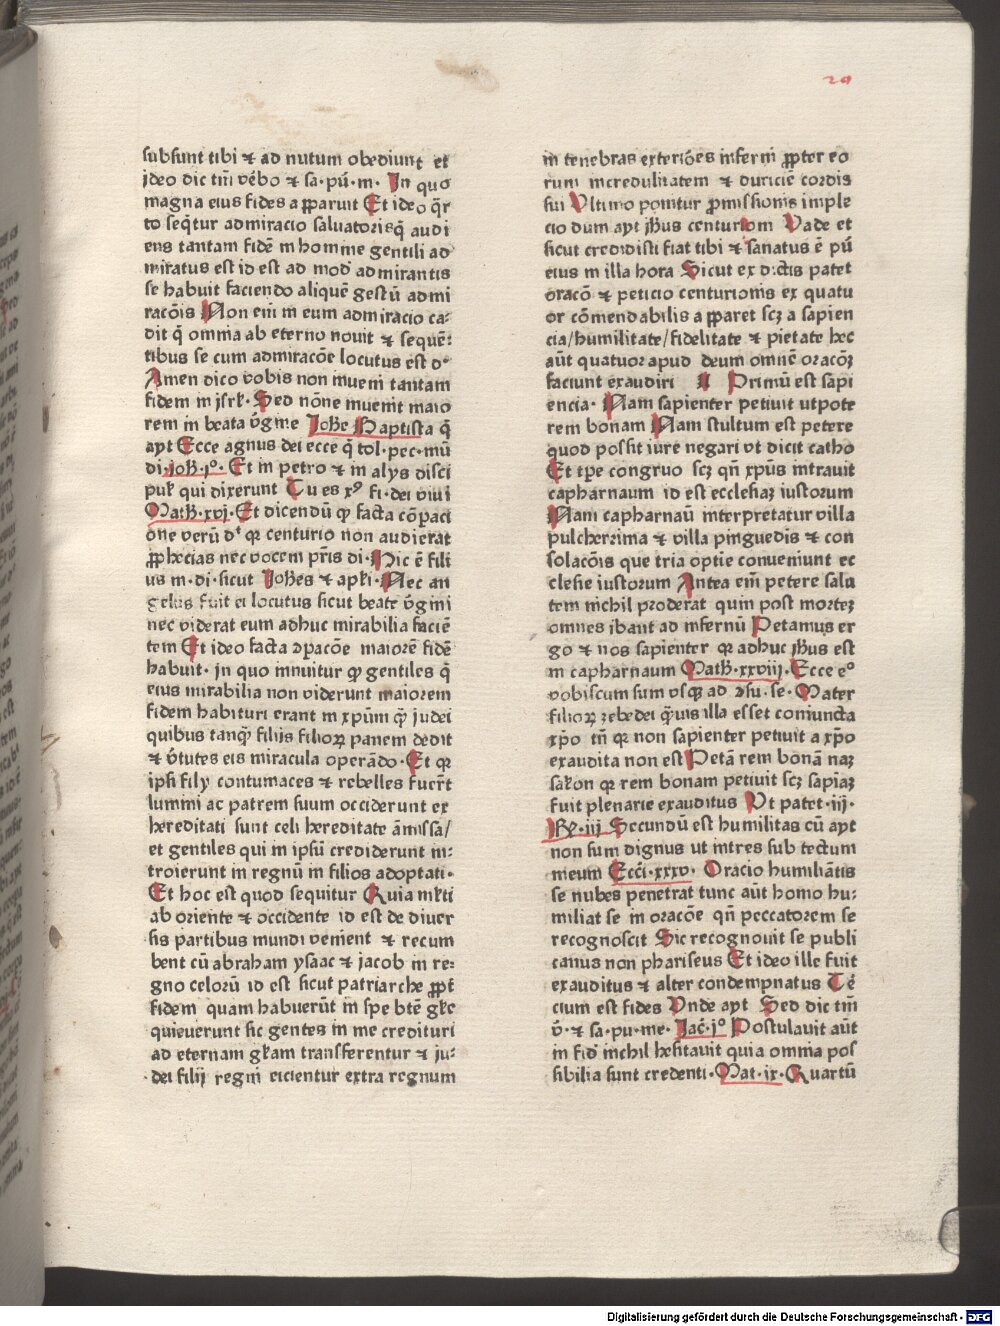 29
subsunt tibi ⁊ ad nutum obediunt et
ideo dic tm̄ v̄bo ⁊ sa·pū·m· In quo
magna eius fides apparuit Et ideo q̄r
to seq̄tur admiracio saluatoris q̄ audi
ens tantam fidē in homine gentili ad
miratus est id est ad mod̄ admirantis
se habuit faciendo aliquē gestū admi
rac̄ois Non em̄ in eum admiracio ca-
dit q̄ omnia ab eterno nouit ⁊ sequē-
tibus se cum admirac̄oe locutus est d·
Amen dico vobis non inueni tantam
fidem in jsrl̄· Sed nōne inuenit maio
rem in beata v̄gine Joħe Baptista q̄
ayt Ecce agnus dei ecce q̄ tol·pec·mū
di·joħ·j°· Et in petro ⁊ in alys disci
pul̄ qui dixerunt Tu es x° fi·dei viui
Matħ·xvj· Et dicendū ꝙ facta cōpaci
one verū d᷒ qꝛ centurio non audierat
ꝓphecias nec vocem pr̄is di· Hic ē fili
us m·di·sicut Joħes ⁊ apl̄i· Nec an
gelus fuit ei locutus sicut beate v̄gini
nec viderat eum adhuc mirabilia faciē
tem Et ideo facta ꝯpac̄oe maiorē fidē
habuit· in quo innuitur ꝙ gentiles q̄
eius mirabilia non viderunt maiorem
fidem habituri erant in xp̄um q̄ judei
quibus tanq̄ filijs filioꝝ panem dedit
⁊ v̄tutes eis miracula operādo· Et qꝛ
ipsi fily contumaces ⁊ rebelles fuer̄t
lumini ac patrem suum occiderunt ex
hereditati sunt celi hereditate āmissa/
et gentiles qui in ipsū crediderunt in-
troierunt in regnū in filios adoptati·
Et hoc est quod sequitur Quia ml̄ti
ab oriente ⁊ occidente id est de diuer
sis partibus mundi venient ⁊ recum
bent cū abraham ysaac ⁊ jacob in re-
gno celorū id est sicut patriarche ꝓpt̄
fidem quam habuerūt in spe btē gl̄e
quieuerunt sic gentes in me credituri
ad eternam gl̄am transferentur ⁊ ju-
dei filij regni eicientur extra regnum
in tenebras exteriōes inferni ꝓpter eo
rum incredulitatem ⁊ duriciē cordis
sui Vltimo ponitur ꝓmissionis imple
cio dum ayt jħus centurioni Vade et
sicut credidisti fiat tibi ⁊ sanatus ē pū
eius in illa hora Sicut ex dictis patet
orac̄o ⁊ peticio centurionis ex quatu
or cōmendabilis apparet scꝫ a sapien
cia/humilitate/fidelitate ⁊ pietate hec
aūt quatuor apud deum omnē orac̄oꝫ
faciunt exaudiri ¶ Primū est sapi
encia· Nam sapienter petiuit utpote
rem bonam Nam stultum est petere
quod possit iure negari vt dicit catho
Et tp̄e congruo scꝫ qn̄ xp̄us intrauit
capharnaum id est ecclesiaꝫ iustorum
Nam capharnaū interpretatur villa
pulcherrima ⁊ villa pinguedis ⁊ con
solac̄ois que tria optie conueniunt ec
clesie iustorum Antea em̄ petere salu
tem nichil proderat quin post morteꝫ
omnes ibant ad infernū Petamus er
go ⁊ nos sapienter qꝛ adhuc jħus est
in capharnaum Matħ·xxviij· Ecce e°
vobiscum sum vsqꝫ ad ꝯsu·se· Mater
filioꝝ zebedei q̄uis illa esset coniuncta
xp̄o tn̄ qꝛ non sapienter petiuit a xp̄o
exaudita non est Petā rem bonā naꝫ
salōn qꝛ rem bonam petiuit scꝫ sapiāꝫ
fuit plenarie exauditus Vt patet·iij·
Re̅·iij Secundū est humilitas cū ayt
non sum dignus ut intres sub tectum
meum Ecci̅·xxxv· Oracio humiliātis
se nubes penetrat tunc aūt homo hu-
miliat se in orac̄oe qn̄ peccatorem se
recognoscit Sic recognouit se publi
canus non phariseus Et ideo ille fuit
exauditus ⁊ alter condempnatus Tē
cium est fides Vnde ayt Sed dic tm̄
v̄·⁊ sa·pu·me· Jac̄·j° Postulauit aūt
in fid̄ nichil hesitauit quia omnia pos
sibilia sunt credenti· Mat·ix· Quartū
Digitalisierung gefördert durch die Deutsche Forschungsgemeinschaft · DFG